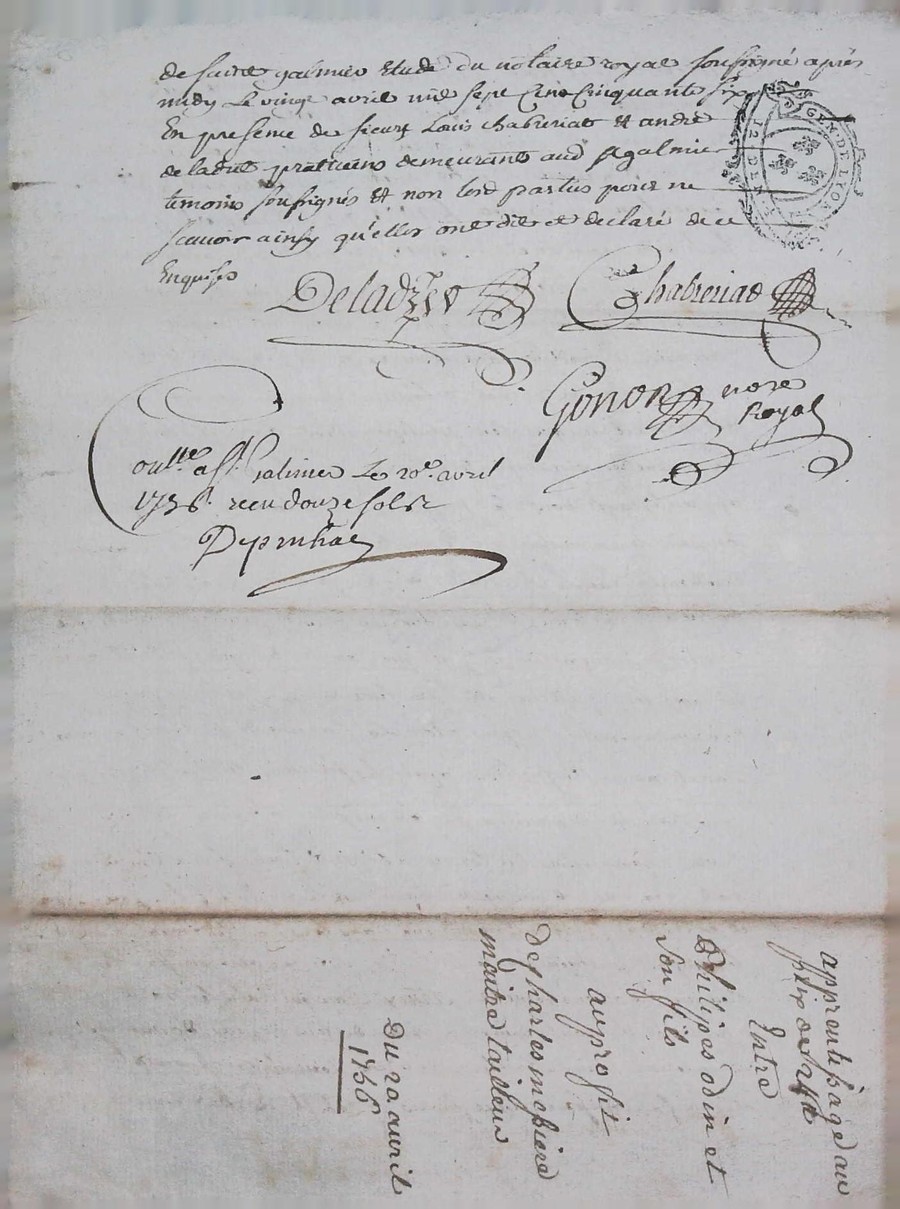 de saint galmier Etude du notaire royal soussigné après
midy Le vingt avril mil sept Cent Cinquante six
En presence de sieurs Louis chabreriat et andré
deladret praticiens demeurants aud st galmier
temoins soussignés et non lesd parties pour ne
scavoir ainsy qu'elles ont dit et declaré de ce
Enquises
GEN. DE LYON
Chabreriat
Gonon nore
Royal
a st. Galmier Le 20e. avril
1756. receu douze sols
apprentissage au
prix de
Entre
Philipes odin et
son fils
au profit
De charles
maitre tailleur
Du 20 avril
1756